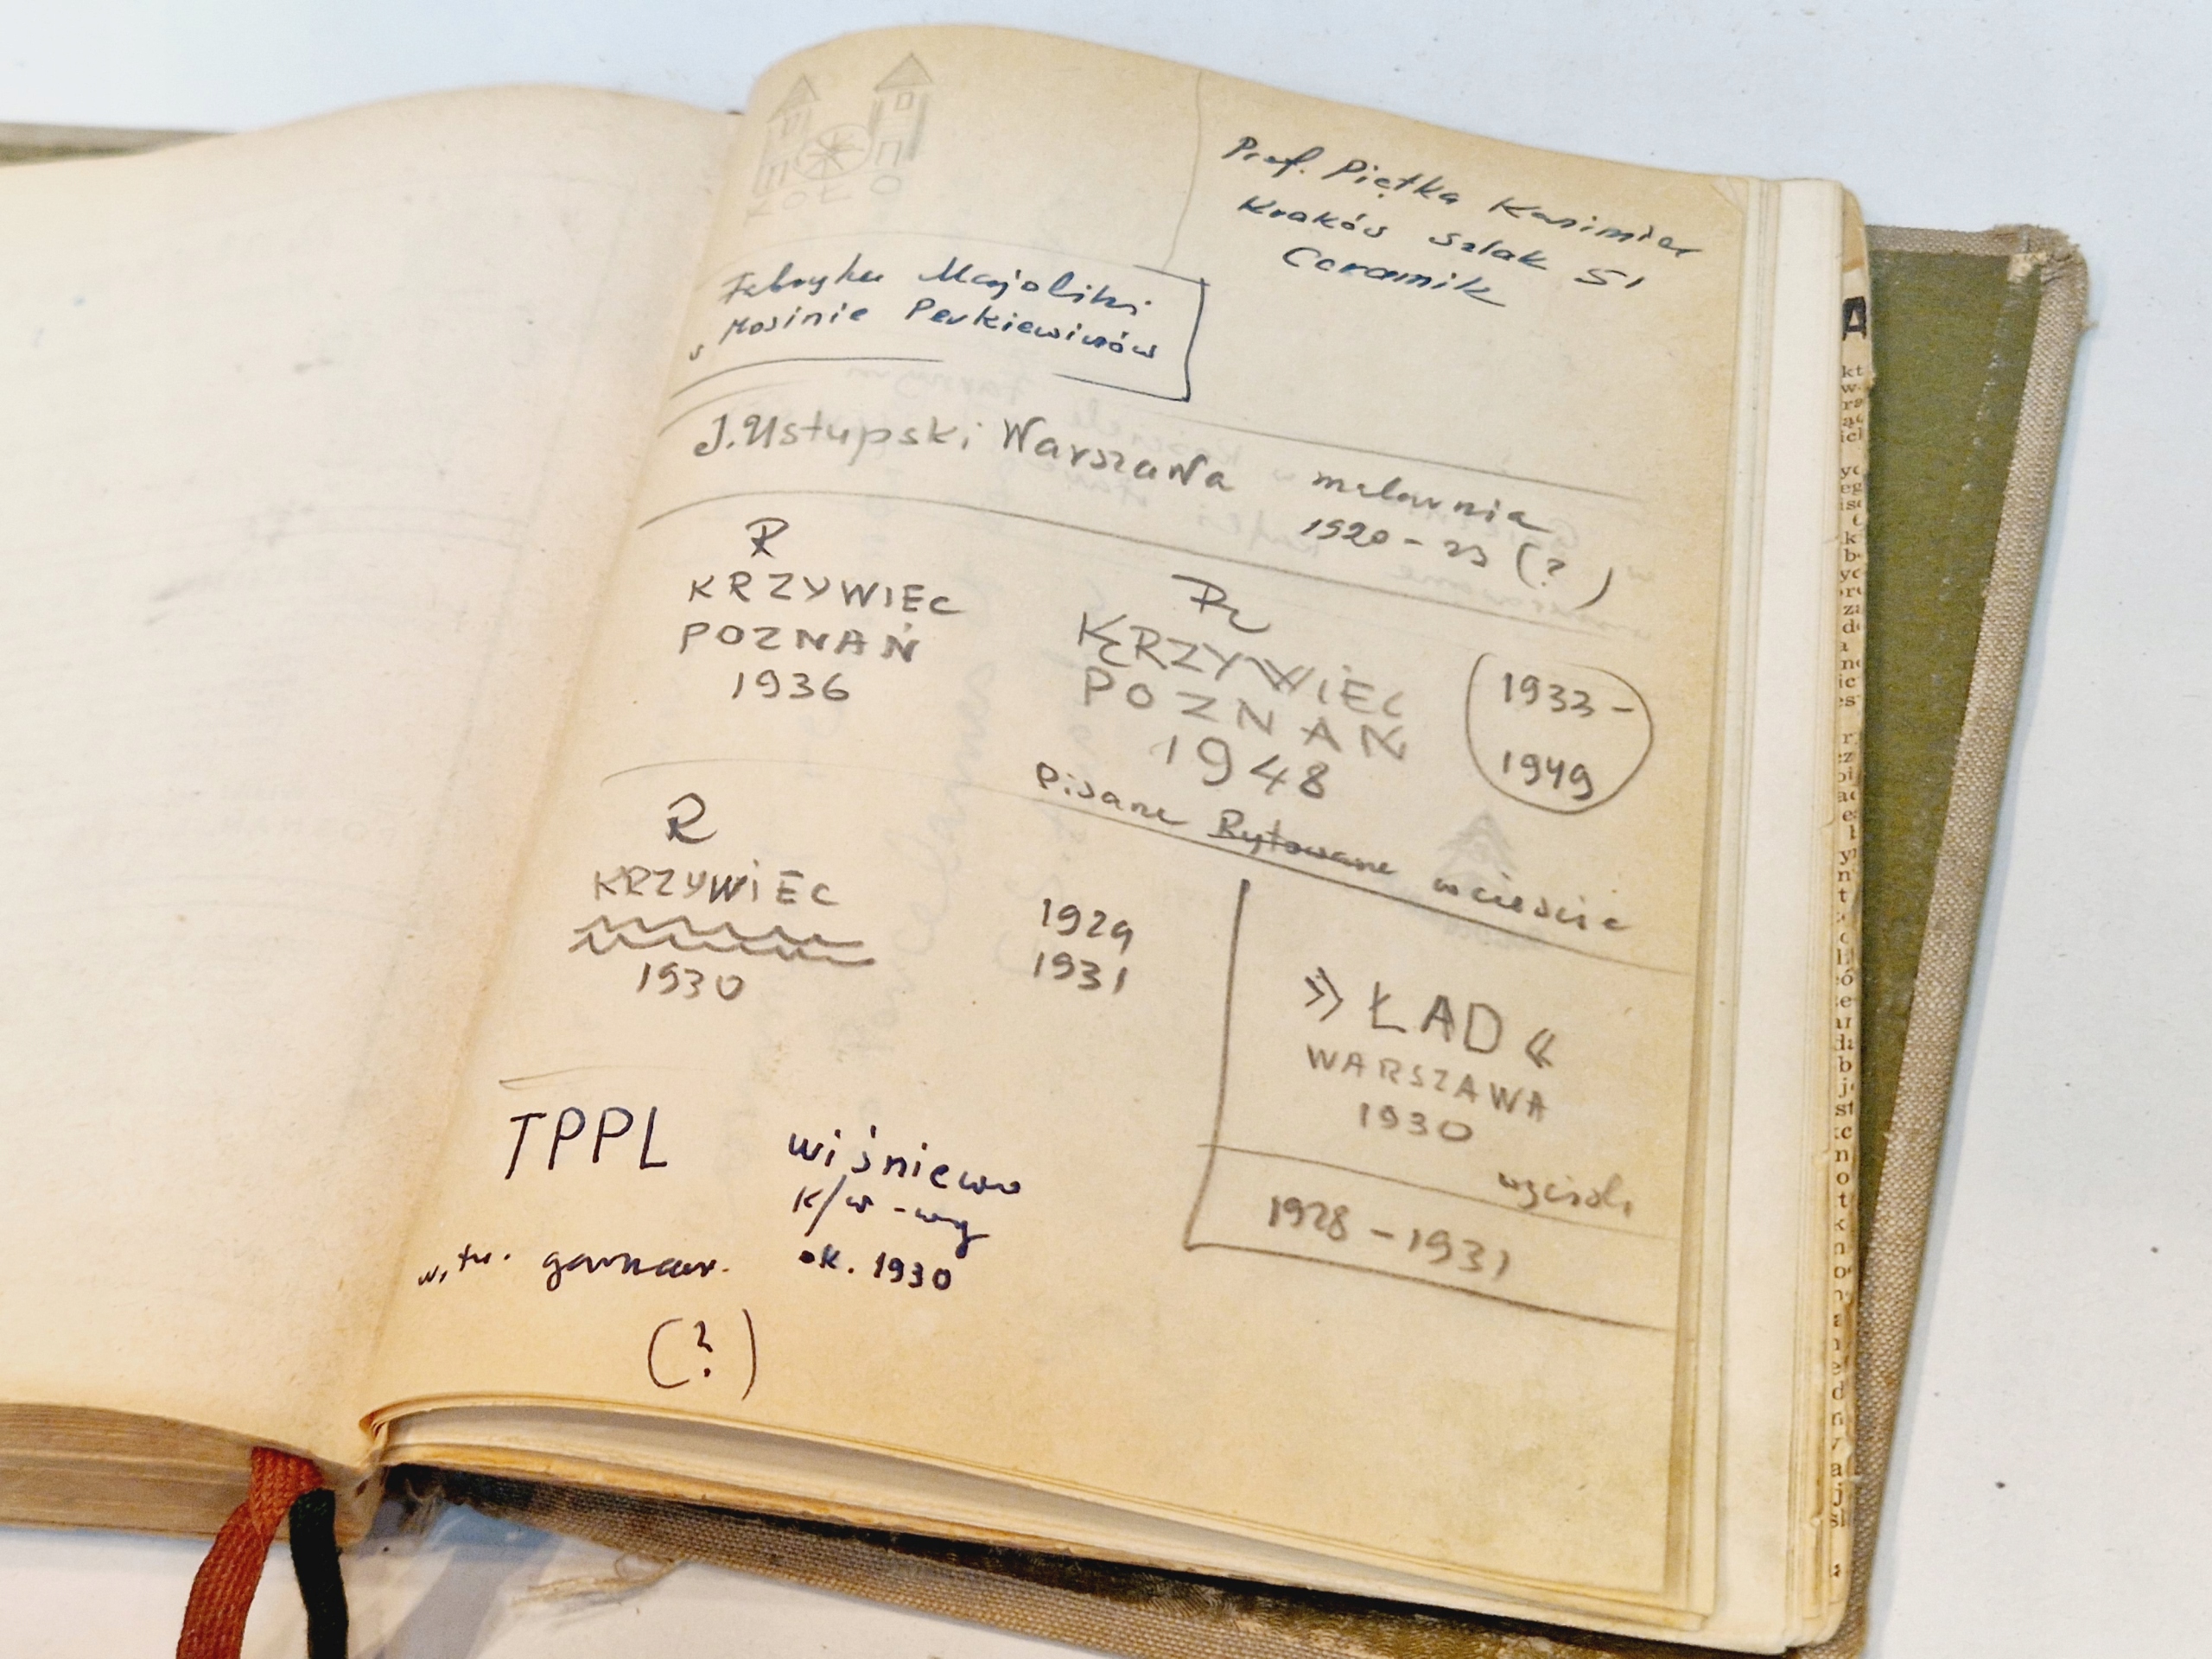 KOŁO
Prof. Piętka Kazimier
Kraków Szlak 51
Ceramik
Fabryka Majoliki
w Mosinie Perkiewiczów
J. Ustupski Warszawa malarnia
1920-23 (?)
R
KRZYWIEC
POZNAŃ
1936
R
KRZYWIEC
POZNAŃ
1948
1933-
1949
Pisane Rytowane w cieście
R
KRZYWIEC
1930
1929
1931
»ŁAD«
WARSZAWA
1930
wycisk
1928-1931
TPPL
wiśniewo
K/w -wy
ok. 1930
garncar.
(?)